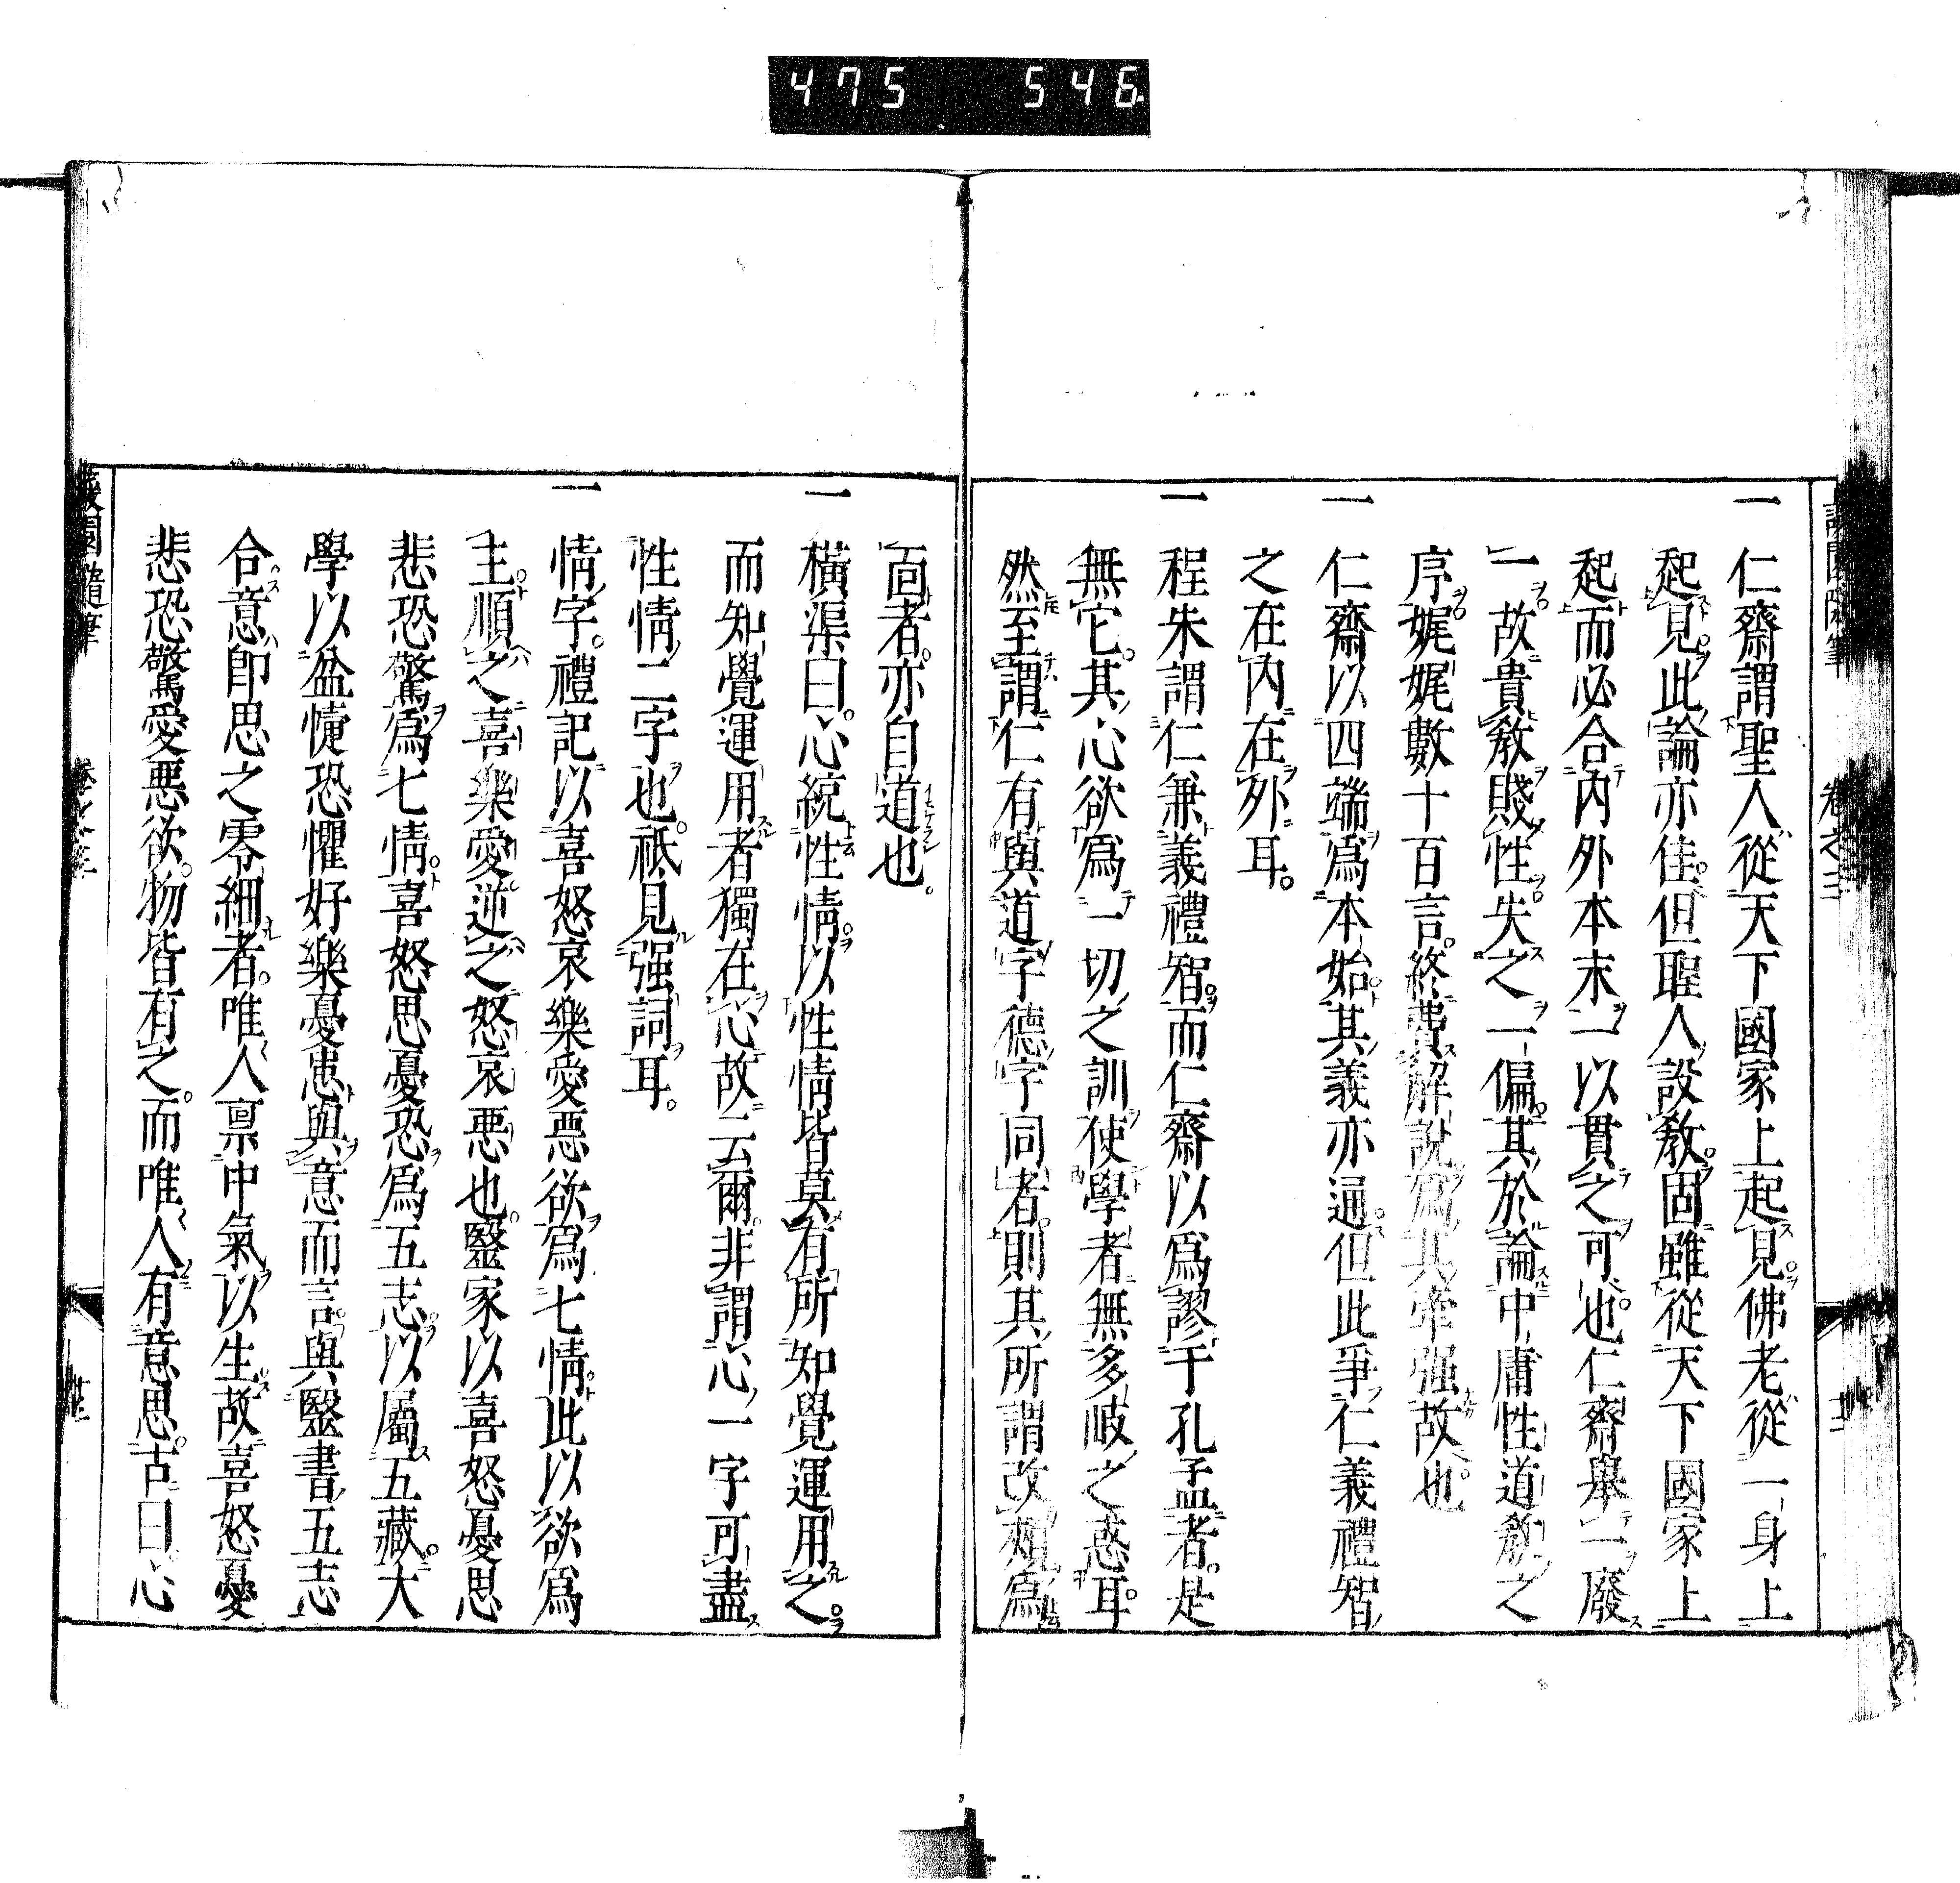 475 546
蘐園隨筆 卷之三
一 仁齋謂聖人從天下國家上起見佛老從一身上
起見此論亦佳但聖人設教固雖從天下國家上
起而必合内外本末一以貫之可也仁齋舉一廢
一故貴教賤性失之一偏其於論中庸性道教之
序娓娓數十百言終費解說爲其牽强故也
一 仁齋以四端爲本始其義亦通但此爭仁義禮智
之在内在外耳
一 程朱謂仁兼義禮智而仁齋以爲謬于孔孟者是
無它其心欲爲一切之訓使學者無多岐之惑耳
然至謂仁有與道字德字同者則其所謂改頰爲
面者亦自道也
一 橫渠曰心統性情以性情皆莫有所知覺運用之
而知覺運用者獨在心故云爾非謂心一字可盡
性情二字也祗見强詞耳
一 情字禮記以喜怒哀樂愛悪欲爲七情此以欲爲
主順之喜樂愛逆之怒哀悪也醫家以喜怒憂思
悲恐驚爲七情喜怒思憂恐爲五志以屬五藏大
學以忿懥恐懼好樂憂患與意而言與醫書五志
合意即思之零細者唯人稟中氣以生故喜怒憂
悲恐驚愛悪欲物皆有之而唯人有意思古曰心
蘐園隨筆 卷之三